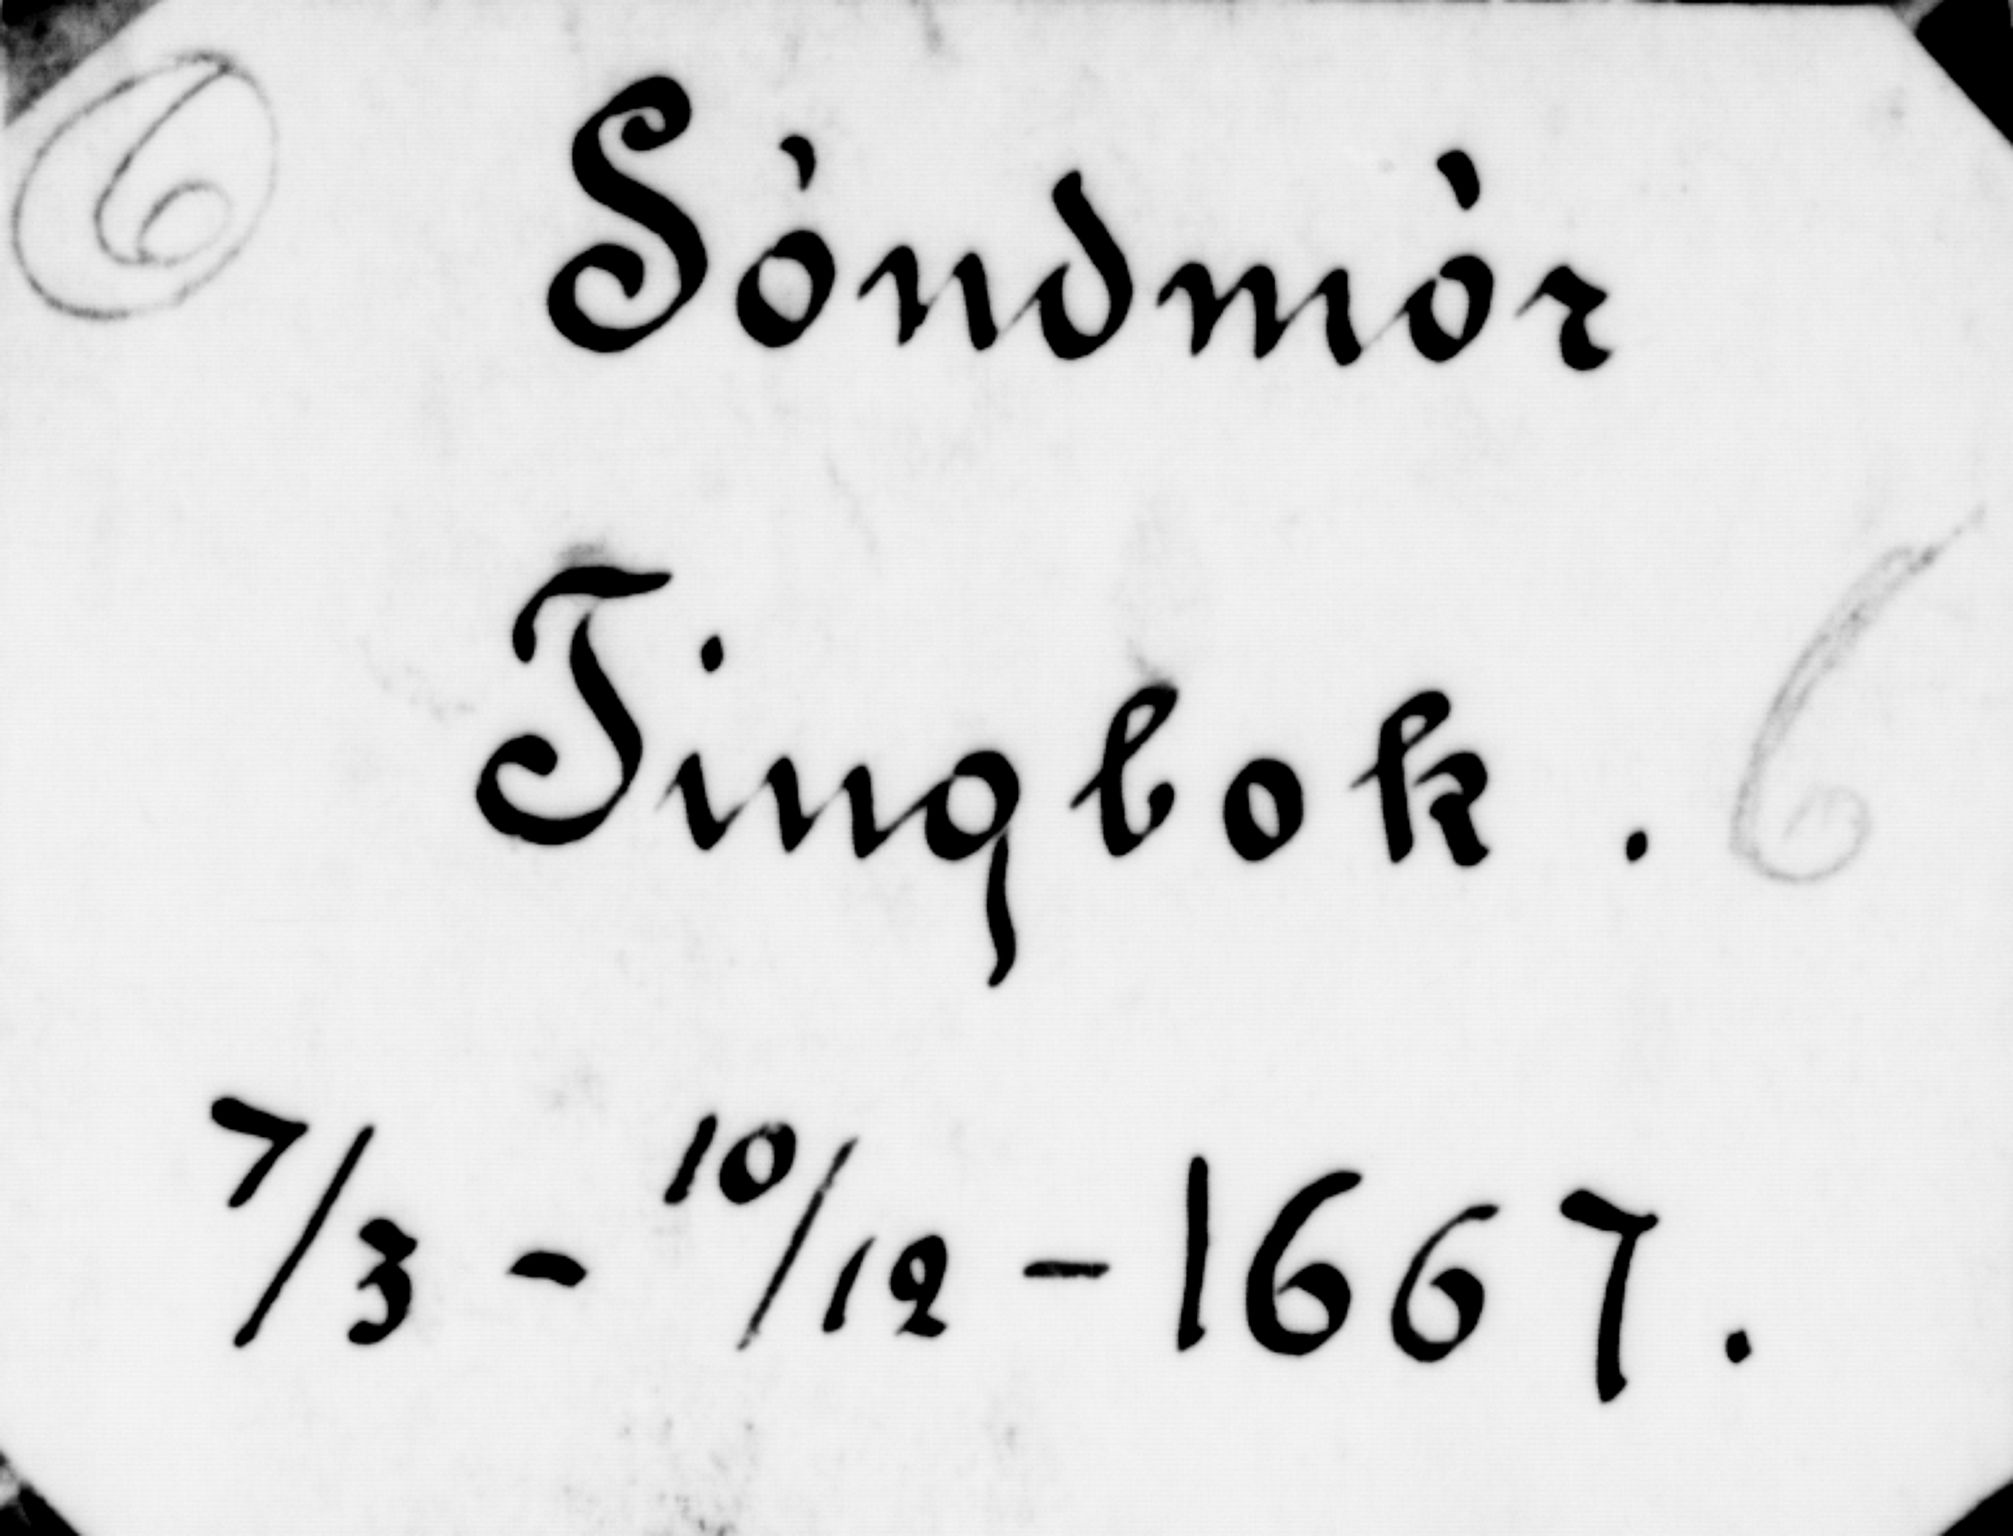 6
Sóndmór
Tingbok. 6
7/3 - 10/12 - 1667.